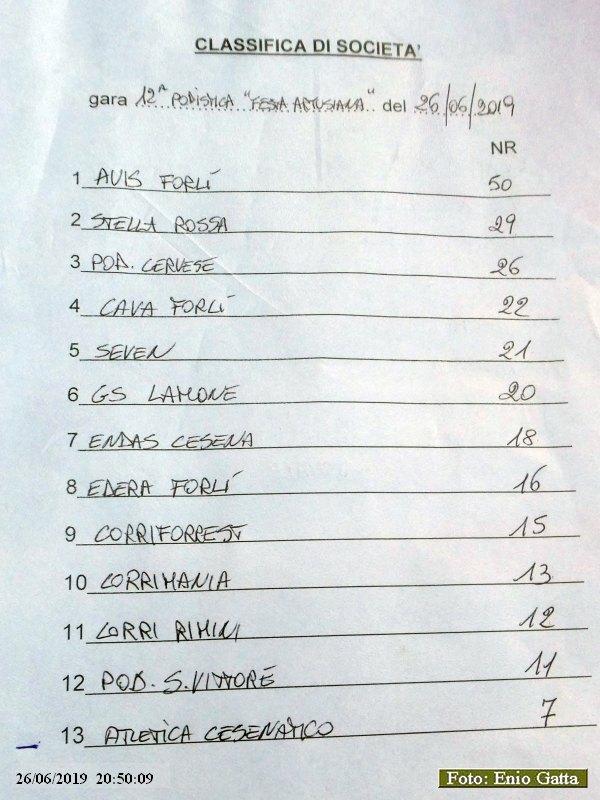 CLASSIFICA DI SOCIETA'
gara 12ª PODISTICA "FESTA ARTUSIANA" del 26/06/2019
NR
1 AVIS FORLÌ 50
2 STELLA ROSSA 29
3 POD. CERVESE 26
4 CAVA FORLÌ 22
5 SEVEN 21
6 GS LAMONE 20
7 ENDAS CESENA 18
8 EDERA FORLÌ 16
9 CORRIFORREST 15
10 CORRIMANIA 13
11 CORRI RIMINI 12
12 POD. S. VITTORE 11
13 ATLETICA CESENATICO 7
26/06/2019 20:50:09
Foto: Enio Gatta